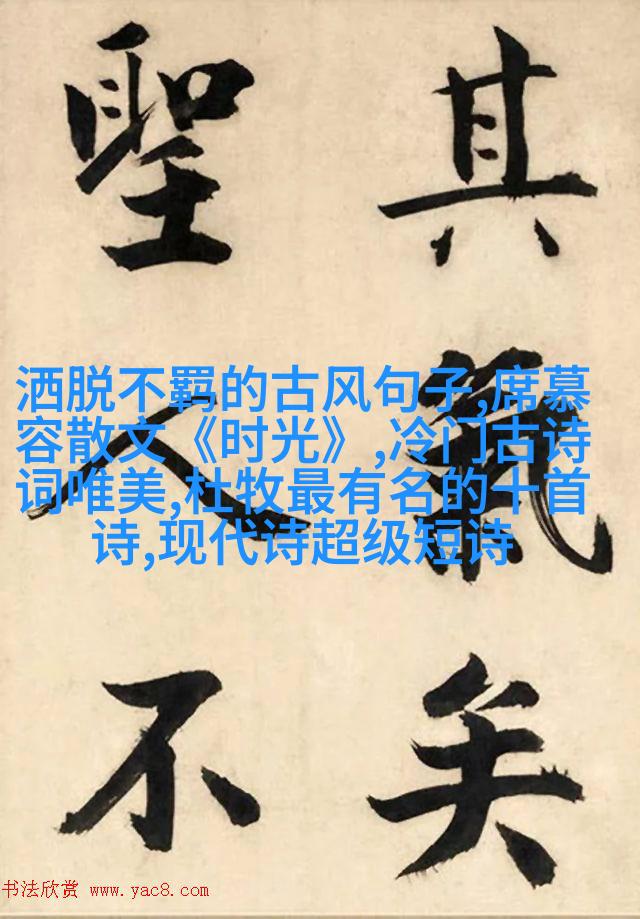 其氣矣
聖人不
洒脱不羁的古风句子,席慕
容散文《时光》,冷门古诗
词唯美,杜牧最有名的十首
诗,现代诗超级短诗
书法欣赏 www.yac8.com